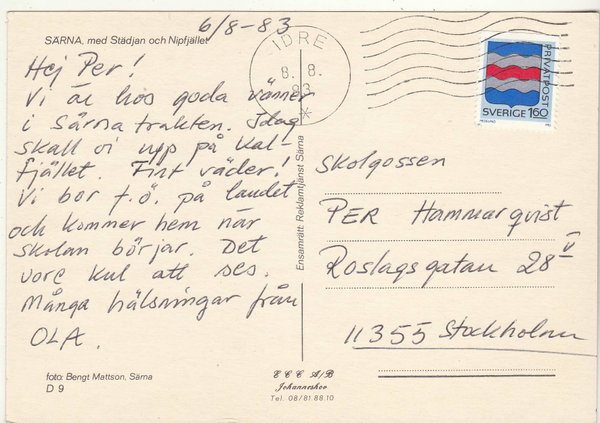 6/8-83
SÄRNA, med Städjan och Nipfjället
Hej Per!
Vi är hos goda vänner
i Särnatrakten. Idag
skall vi upp på kal-
fjället. Fint väder!
Vi bor f.ö. på landet
och kommer hem när
skolan börjar. Det
vore kul att ses.
Många hälsningar från
OLA.
foto: Bengt Mattson, Särna
D 9
Ensamrätt: Reklamtjänst Särna
E C C A/B
Johanneshov
Tel. 08/81.88.10
IDRE
8. 8.
83
*
PRIVATPOST
SVERIGE 160
Skolgossen
PER Hammarqvist
Roslagsgatan 28 V
11355 Stockholm